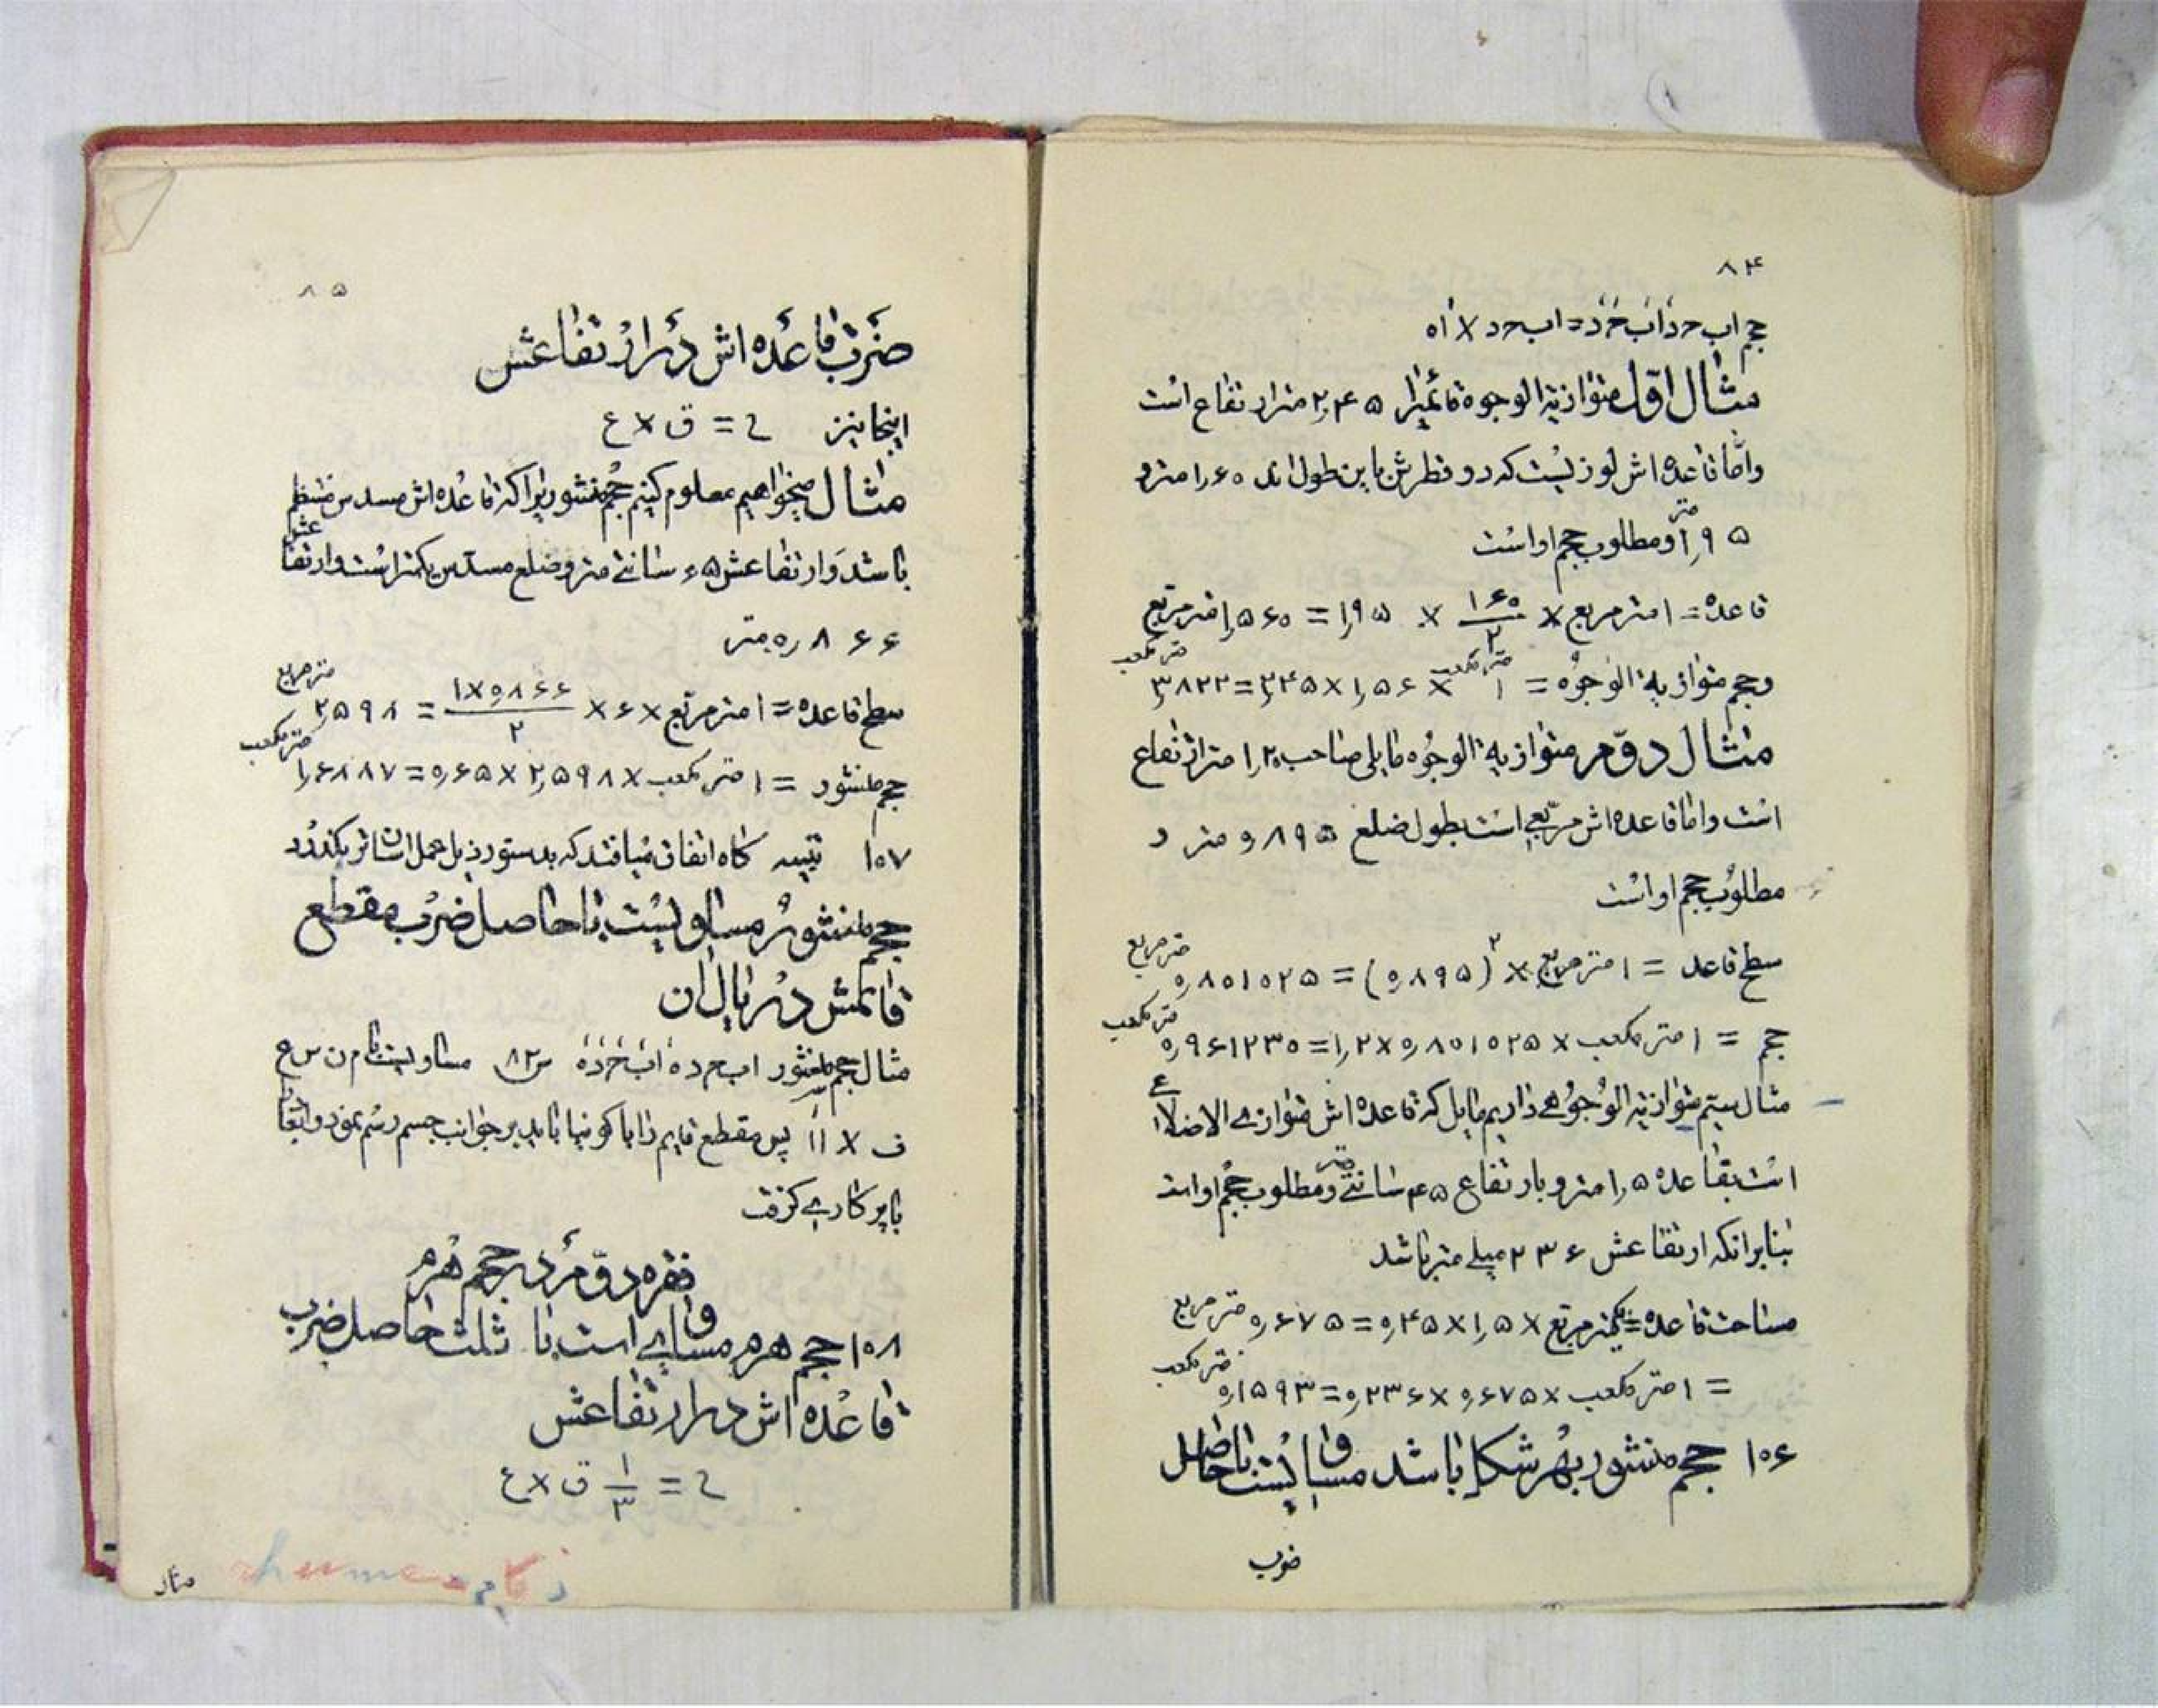 ۸۴
حجم اب ح د اَبَ حَ دَ = اب ح د × اَه
مثال اوّل متوازیة الوجوه قائمیرا ۲٫۴۵ متر ارتفاع است
وامّا قاعده اش لوزیست که دو قطرش باین طول اند ۱٫۶۰ متر و
۱٫۹۵ متر ومطلوب حجم او است
قاعده = ۱ متر مربع × ۱۶۰/۲ × ۱٫۹۵ = ۱٫۵۶۰ متر مربع
وحجم متوازیة الوجوه = ۱ متر مکعب × ۱٫۵۶ × ۲٫۴۵ = ۳٫۸۲۲ متر مکعب
مثال دوّم متوازیة الوجوه مایلی صاحب ۱٫۲۰ متر ارتفاع
است واما قاعده اش مربّعی است بطول ضلع ۰٫۸۹۵ متر و
مطلوب حجم او است
سطح قاعده = ۱ متر مربع × (۰٫۸۹۵)۲ = ۰٫۸۰۱۰۲۵ متر مربع
حجم = ۱ متر مکعب × ۰٫۸۰۱۰۲۵ × ۱٫۲ = ۰٫۹۶۱۲۳۰ متر مکعب
مثال سیّم متوازیة الوجوهی داریم مایل که قاعده اش متوازی الاضلاعی
است بقاعده ۱٫۵ متر و بارتفاع ۴۵ سانتی متر ومطلوب حجم او است
بنابرانکه ارتفاعش ۲۳۶ میلی متر باشد
مساحت قاعده = یکمتر مربع × ۱٫۵ × ۰٫۴۵ = ۰٫۶۷۵ متر مربع
= ۱ متر مکعب × ۰٫۶۷۵ × ۰٫۲۳۶ = ۰٫۱۵۹۳ متر مکعب
۱۰۶ حجم منشور بهر شکل باشد مساویست با حاصل
ضرب
۸۵
ضرب قاعده اش در ارتفاعش
اینجا نیز ح = ق × ع
مثال میخواهیم معلوم کنیم حجم منشوریرا که قاعده اش مسدس منتظم
باشد وارتفاعش ۶۵ سانتی متر وضلع مسدس یکمتر است وارتفاعش
۰٫۸۶۶ متر
سطح قاعده = ۱ متر مربع × ۶ × ۱×۰٫۸۶۶/۲ = ۲٫۵۹۸ متر مربع
حجم منشور = ۱ متر مکعب × ۲٫۵۹۸ × ۰٫۶۵ = ۱٫۶۸۸۷ متر مکعب
۱۰۷ تنبیه گاه اتفاق میافتد که بدستور ذیل عمل اسانتر بگذرد
حجم منشور مساویست با حاصل ضرب مقطع
قائمش در یال ان
مثال حجم منشور اب ح د ه اَبَ حَ دَ هَ س ۸۲ مساویست با م ن س ع
ف × ااَ پس مقطع قایم زایا کونیا باید بر جوانب جسم رسم نمود وابعاد
با پرکاری گرفت
فقره دوّم در حجم هرم
۱۰۸ حجم هرم مساوی است با ثلث حاصل ضرب
قاعده اش در ارتفاعش
ح = ۱/۳ ق × ع
مثال